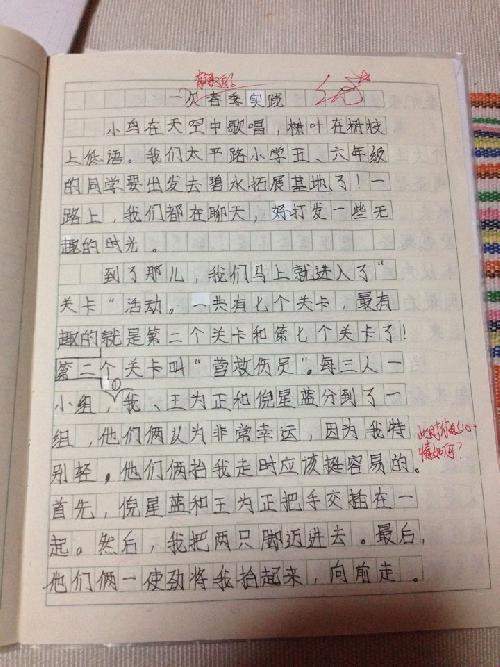 一次春季实践
小鸟在天空中歌唱，树叶在树枝
上低语。我们太平路小学五、六年级
的同学要出发去碧水拓展基地了！一
路上，我们都在聊天，好打发一些无
趣的时光。
到了那儿，我们马上就进入了“
关卡”活动。一共有七个关卡，最有
趣的就是第二个关卡和第七个关卡了！
第二个关卡叫“营救伤员”。每三人一
小组，我、王为正和倪星蓝分到了一
组，他们俩认为非常幸运，因为我特
别轻。他们俩抬我走时应该挺容易的。
首先，倪星蓝和王为正把手交插在一
起。然后，我把两只脚迈进去。最后，
他们俩一使劲将我抬起来，向前走。